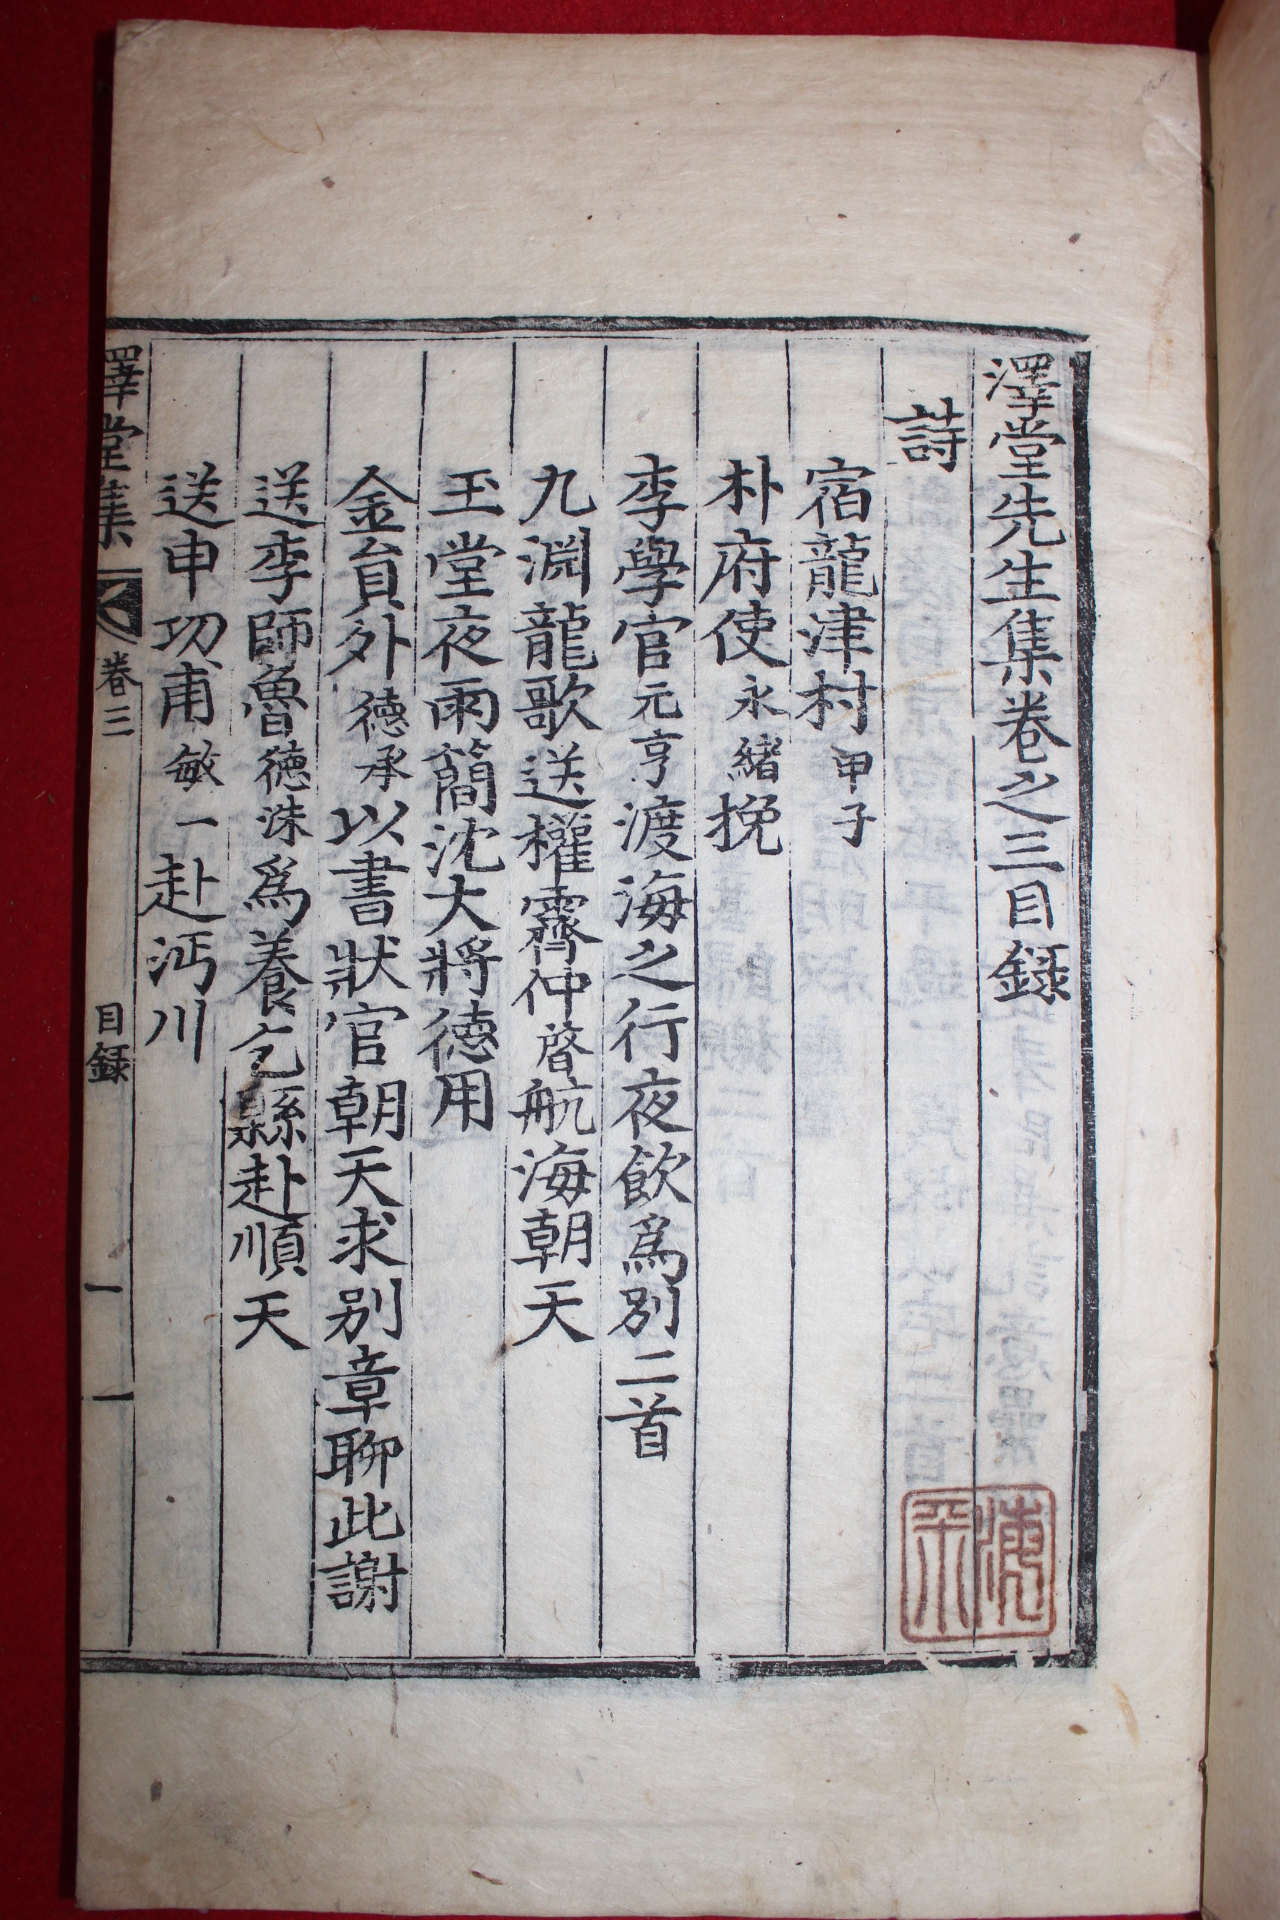 澤堂先生集卷之三目録
詩
宿龍津村甲子
朴府使永緒挽
李學官元亨渡海之行夜飮爲別二首
九淵龍歌送權霽仲啓航海朝天
玉堂夜雨簡沈大將德用
金貟外德承以書狀官朝天求別章聊此謝
送李師魯德洙爲養乞縣赴順天
送申功甫敏一赴沔川
澤堂集 卷三 目録 一